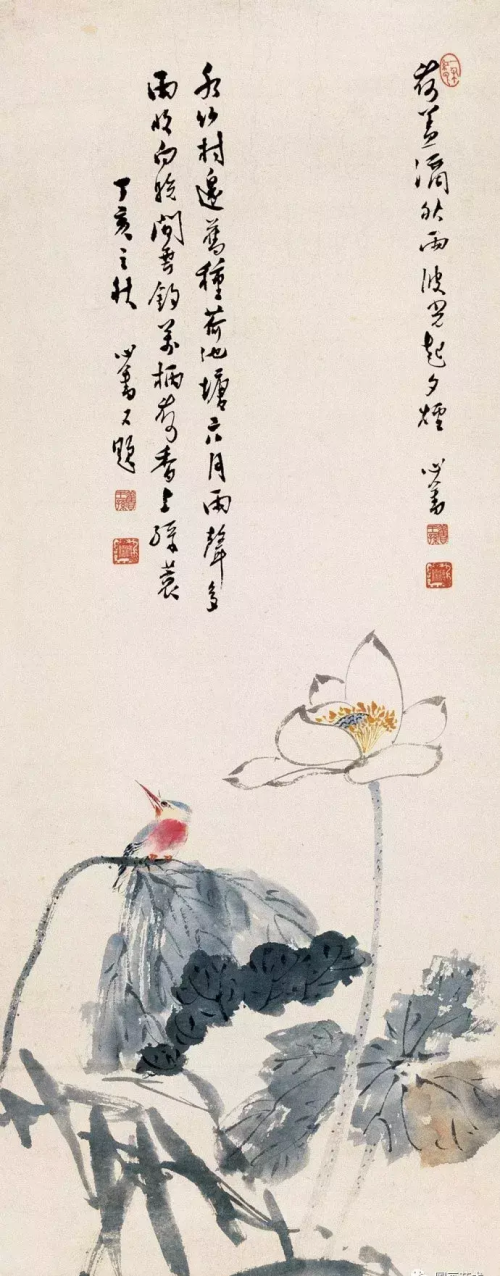 荷蓋滴秋雨波光起夕煙 心畬
水竹村邊舊種荷池塘六月雨聲多
雨收向晚閒垂釣萬柄荷香上綠蓑
丁亥之秋 心畬又題